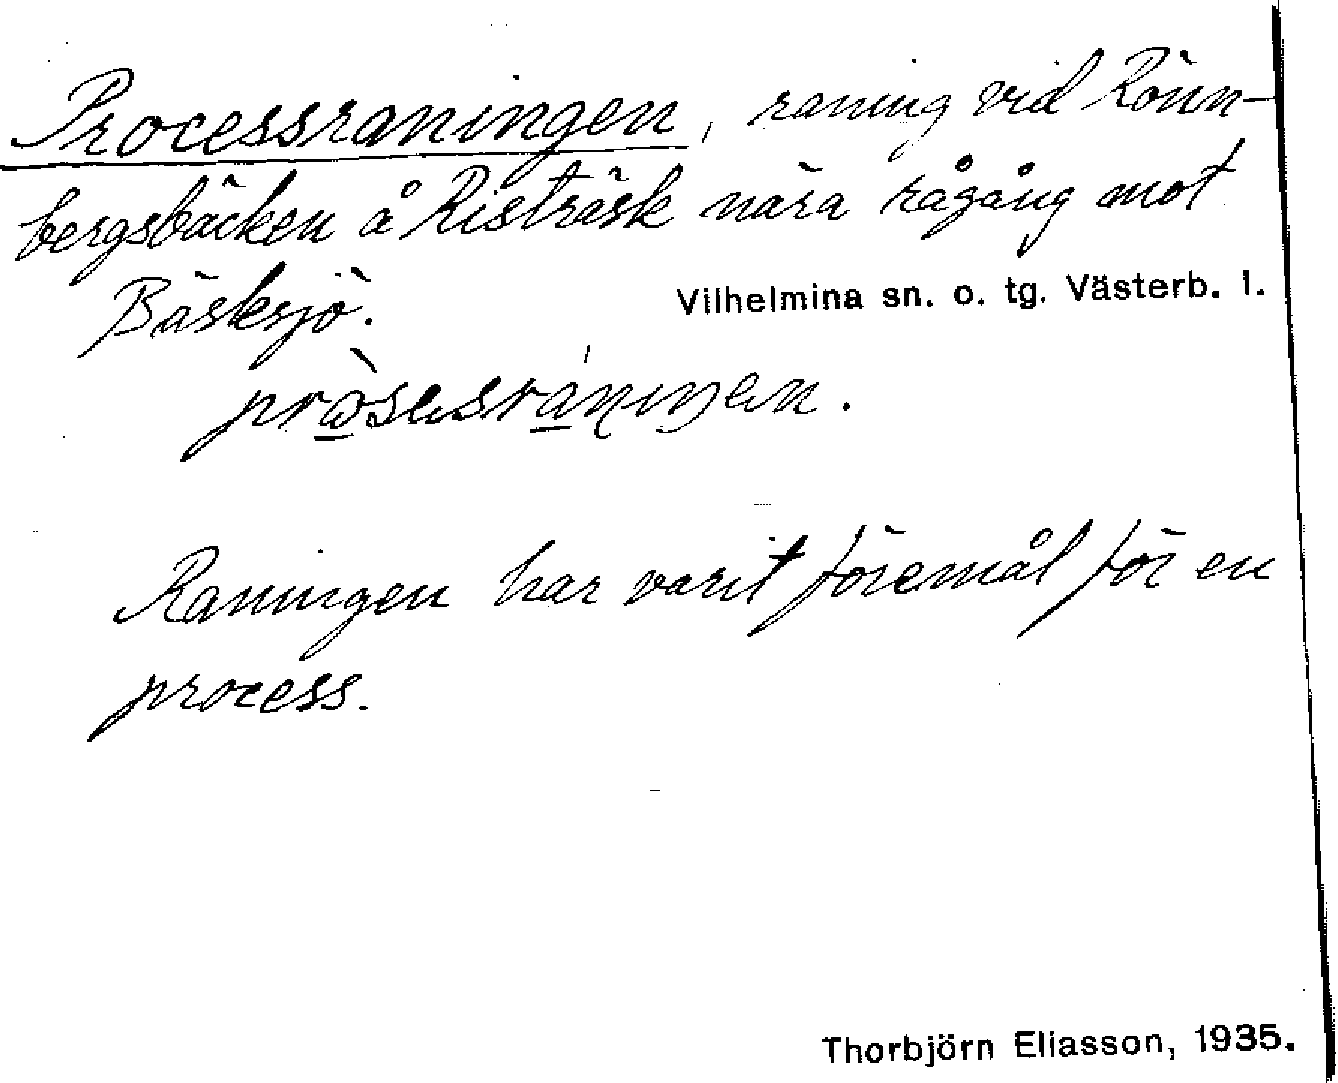 Processraningen, raning vid Rönn-
bergsbäcken å Risträsk nära rågång mot
Bäsksjö.
Vilhelmina sn. o. tg. Västerb. l.
Raningen har varit föremål för en
process.
Thorbjörn Eliasson, 1935.